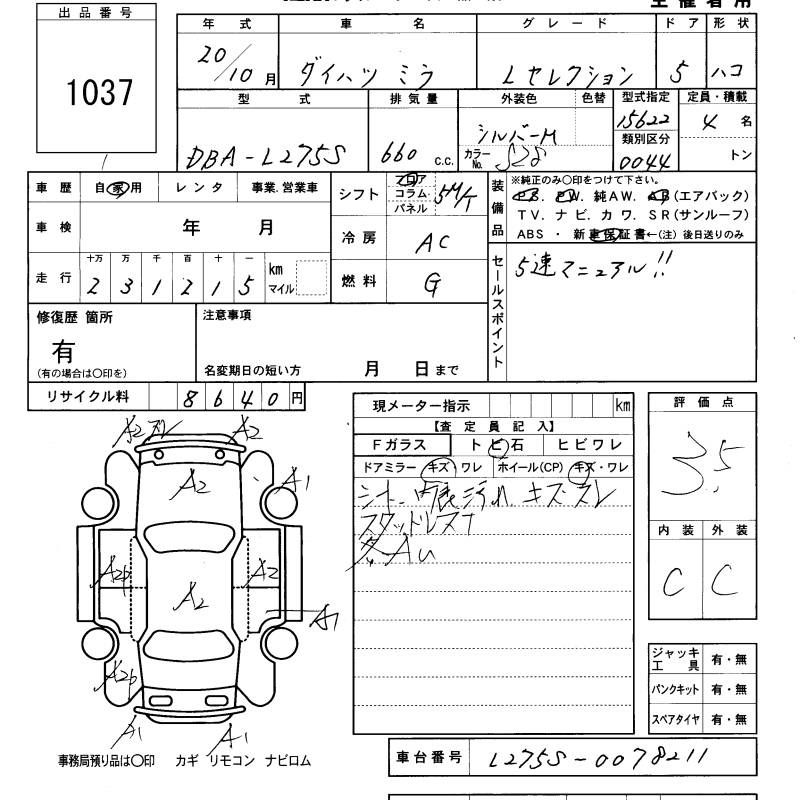 出品番号
1037
年式 車名 グレード ドア 形状
20/10月 ダイハツ ミラ Lセレクション 5 ハコ
型式 排気量 外装色 色替 型式指定 定員・積載
DBA-L275S 660 c.c. シルバーM 15622 4名
カラーNo. S28 類別区分 0044 トン
車歴 自家用 レンタ 事業.営業車
シフト フロア コラム パネル 5M/T
装備品 ※純正のみ〇印をつけて下さい。
PS. PW. 純AW. AB(エアバック)
TV. ナビ. カワ. SR(サンルーフ)
ABS ・ 新車保証書←(注) 後日送りのみ
車検 年 月
冷房 AC
走行 十万 万 千 百 十 一
2 3 1 2 1 5 km マイル
燃料 G
セールスポイント 5速マニュアル!!
修復歴 箇所
有
(有の場合は〇印を)
注意事項
名変期日の短い方 月 日まで
リサイクル料 8640円
現メーター指示 km
【査定員記入】
Fガラス トビ石 ヒビワレ
ドアミラー キズ ワレ ホイール(CP) キズ・ワレ
シート、内張汚れ キズ スレ
スタッドレスタイヤ
多 AU
評価点
3.5
内装 外装
C C
A2 スレ A2
A2 A1
A2P A2
A2
A1
A2P
A1 A1
ジャッキ工具 有・無
パンクキット 有・無
スペアタイヤ 有・無
事務局預り品は〇印 カギ リモコン ナビロム
車台番号 L275S-0078211